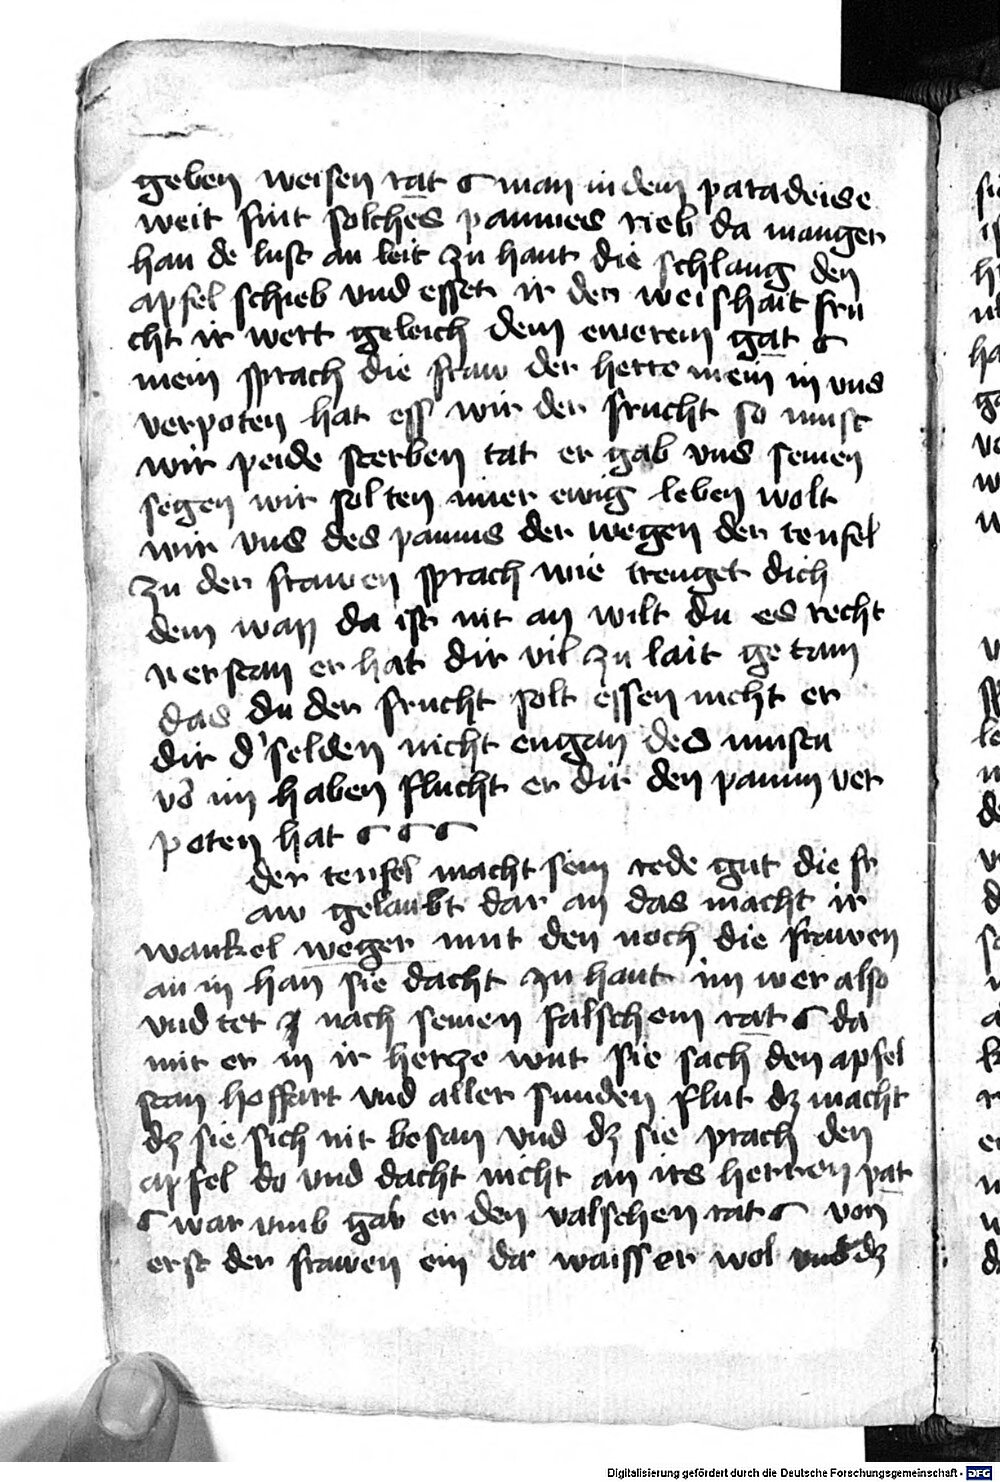 geben weisen rat man in dem paradeise
weit sint solches paumes rieb da manger
han de lust an leit zu hant die schlang den
apfel schieb vnd esset ir der weishait fru
cht ir wert geleich dem ewerem gat
mein sprach die fraw der herre mein in vns
verpoten hat ess wir der frucht so must
wir peide sterben tat er gab vns seinen
segen wir solten imer ewig leben wolt
wir vns des paums der wegen der teufel
zu der frawen sprach wie treuget dich
dem wan da ist nit an wilt du es recht
verstan er hat dir vil zu lait getam
das du der frucht solt essen nicht er
dir d'selden nicht engan des mustu
vo im haben flucht er dir den paum ver
poten hat
der teufel macht sein rede gut die fr
aw gelaubt dar an das macht ir
wankel weger mut den noch die frawen
an in han sie dacht zu hant im wer also
vnd tet nach seinem falschem rat da
mit er in ir hercze wut sie sach den apfel
stan hoffart vnd aller sunden flut dz macht
dz sie sich nit besan vnd dz sie prach den
apfel do vnd dacht nicht an irs herren pat
war vmb gab er den valschen rat von
erst der frawen ein da waisser wol vnd dz
Digitalisierung gefördert durch die Deutsche Forschungsgemeinschaft - DFG